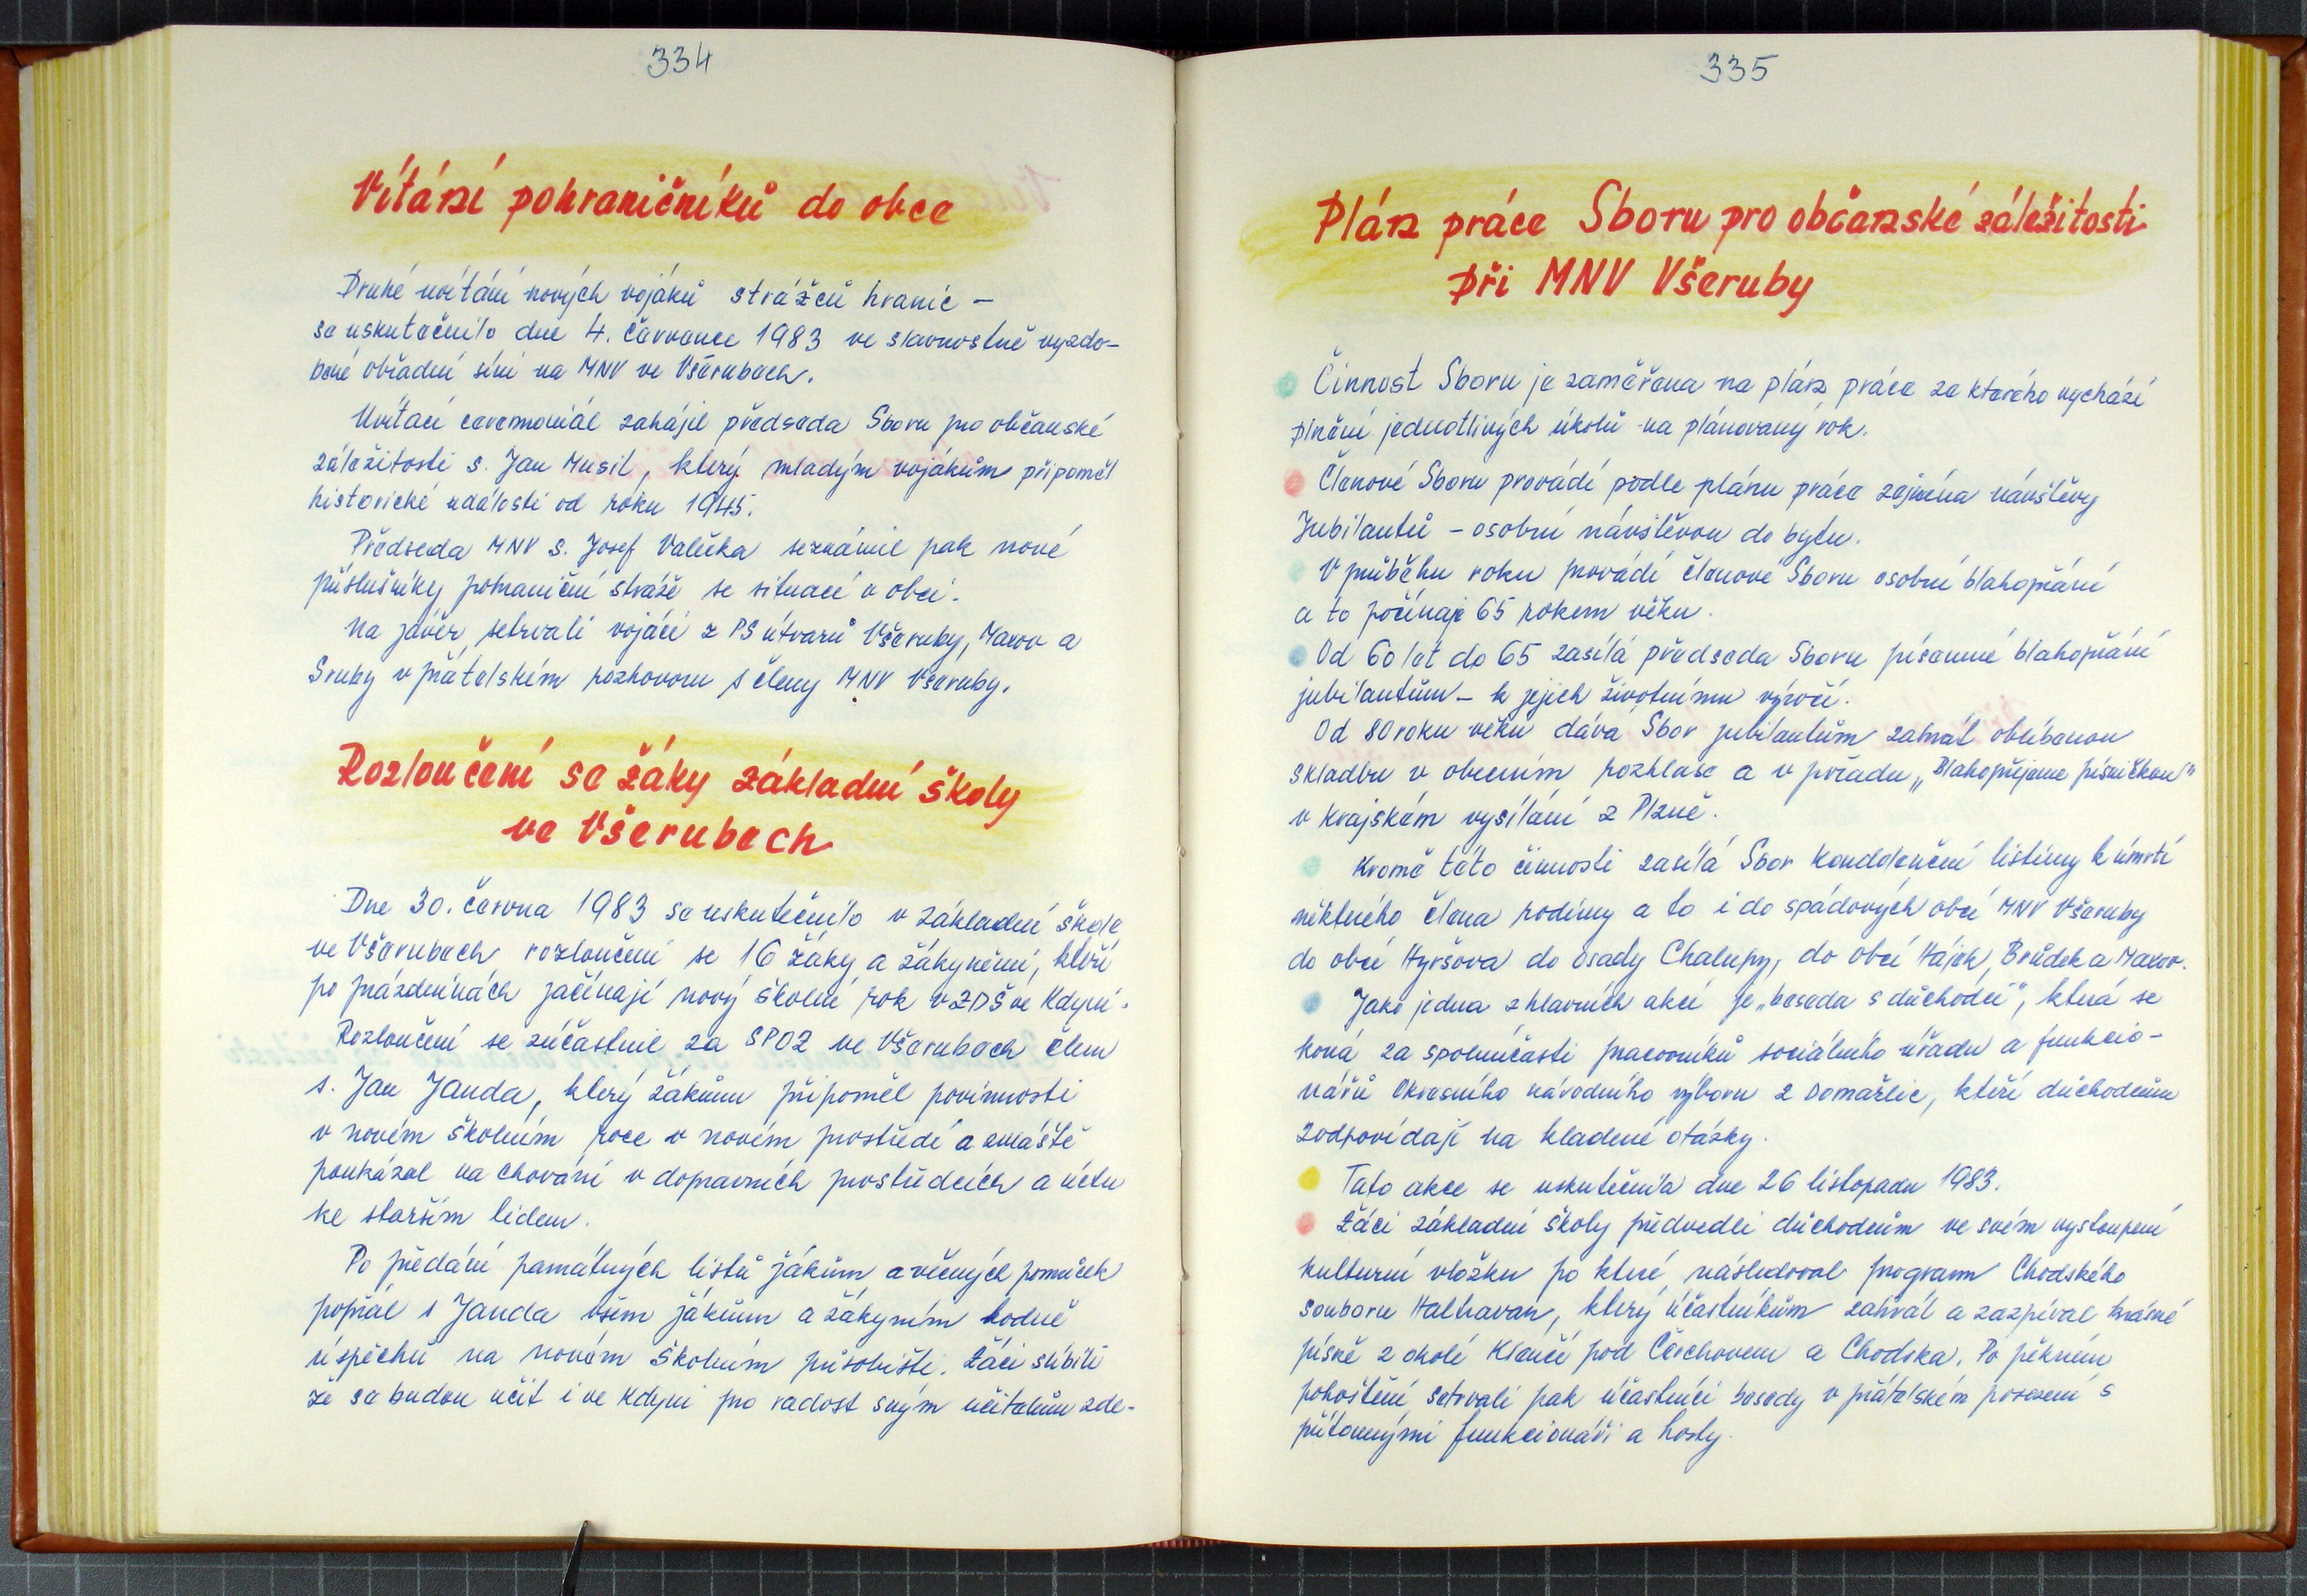 334
Vítání pohraničníků do obce
Druhé uvítání nových vojáků strážců hranic –
se uskutečnilo dne 4. července 1983 ve slavnostně vyzdo-
bené obřadní síni na MNV ve Všerubech.
Uvítací ceremoniál zahájil předseda Sboru pro občanské
záležitosti s. Jan Musil, který mladým vojákům připoměl
historické události od roku 1945.
Předseda MNV s. Josef Valečka seznámil pak nové
příslušníky pohraniční stráže se situací v obci.
Na závěr setrvali vojáci z PS útvarů Všeruby, Maxov a
Sruby v přátelském rozhovoru s členy MNV Všeruby.
Rozloučení se žáky základní školy
ve Všerubech
Dne 30. června 1983 se uskutečnilo v základní škole
ve Všerubech rozloučení se 16 žáky a žákyněmi, kteří
po prázdninách začínají nový školní rok v ZDŠ ve Kdyni.
Rozloučení se zúčastnil za SPOZ ve Všerubech člen
s. Jan Janda, který žákům připoměl povinnosti
v novém školním roce v novém prostředí a zvláště
poukázal na chování v dopravních prostředcích a úctu
ke starším lidem.
Po předání památných listů žákům a věcných pomůcek
popřál s Janda všem žákům a žákyním hodně
úspěchů na novém školním působišti. Žáci slíbili
že se budou učit i ve Kdyni pro radost svým učitelům zde-
335
Plán práce Sboru pro občanské záležitosti
při MNV Všeruby
Činnost Sboru je zaměřena na plán práce ze kterého vychází
plnění jednotlivých úkolů na plánovaný rok.
Členové Sboru provádí podle plánu práce zejména návštěvy
Jubilantů – osobní návštěvou do bytu.
V průběhu roku provádí členové Sboru osobní blahopřání
a to počínaje 65 rokem věku.
Od 60 let do 65 zasílá předseda Sboru písemné blahopřání
jubilantům – k jejich životnímu výročí.
Od 80 roku věku dává Sbor jubilantům zahrát oblíbenou
skladbu v obecním rozhlase a v pořadu „Blahopřejeme písničkou"
v krajském vysílání z Plzně.
Kromě této činnosti zasílá Sbor kondolenční listiny k úmrtí
některého člena rodiny a to i do spádových obcí MNV Všeruby
do obcí Hyršova do osady Chalupy, do obcí Hájek, Brůdek a Maxov.
Jako jedna z hlavních akcí je „beseda s důchodci", která se
koná za spoluúčasti pracovníků sociálního úřadu a funkcio-
nářů Okresního národního výboru z Domažlic, kteří důchodcům
zodpovídají na kladené otázky.
Tato akce se uskutečnila dne 26 listopadu 1983.
Žáci základní školy předvedli důchodcům ve svém vystoupení
kulturní vložku po které následoval program Chodského
souboru Haltravan, který účastníkům zahrál a zazpíval krásné
písně z okolí Klenčí pod Čerchovem a Chodska. Po pěkném
pohoštění setrvali pak účastníci besedy v přátelském posezení s
přítomnými funkcionáři a hosty.